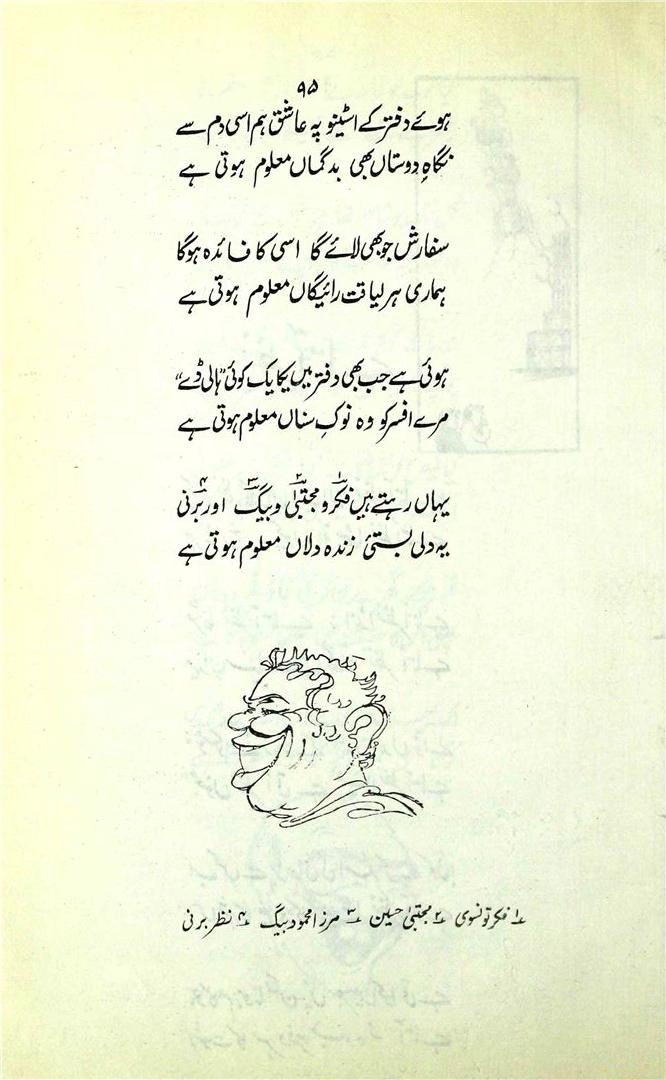 ۹۵
ہوئے دفتر کے اسٹینو پہ عاشق ہم اسی دم سے
نگاہِ دوستاں بھی بدگماں معلوم ہوتی ہے
سفارش جو بھی لائے گا اسی کا فائدہ ہوگا
ہماری ہر لیاقت رائیگاں معلوم ہوتی ہے
ہوئی ہے جب بھی دفتر میں یکایک کوئی "ہالی ڈے"
مرے افسر کو وہ نوکِ سناں معلوم ہوتی ہے
یہاں رہتے ہیں فکر۱ و مجتبیٰ۲ و بیگ۳ اور برنی۴
یہ دلی بستئ زندہ دلاں معلوم ہوتی ہے
۱؎ فکر تونسوی ۲؎ مجتبیٰ حسین ۳؎ مرزا محمود بیگ ۴؎ نظر برنی